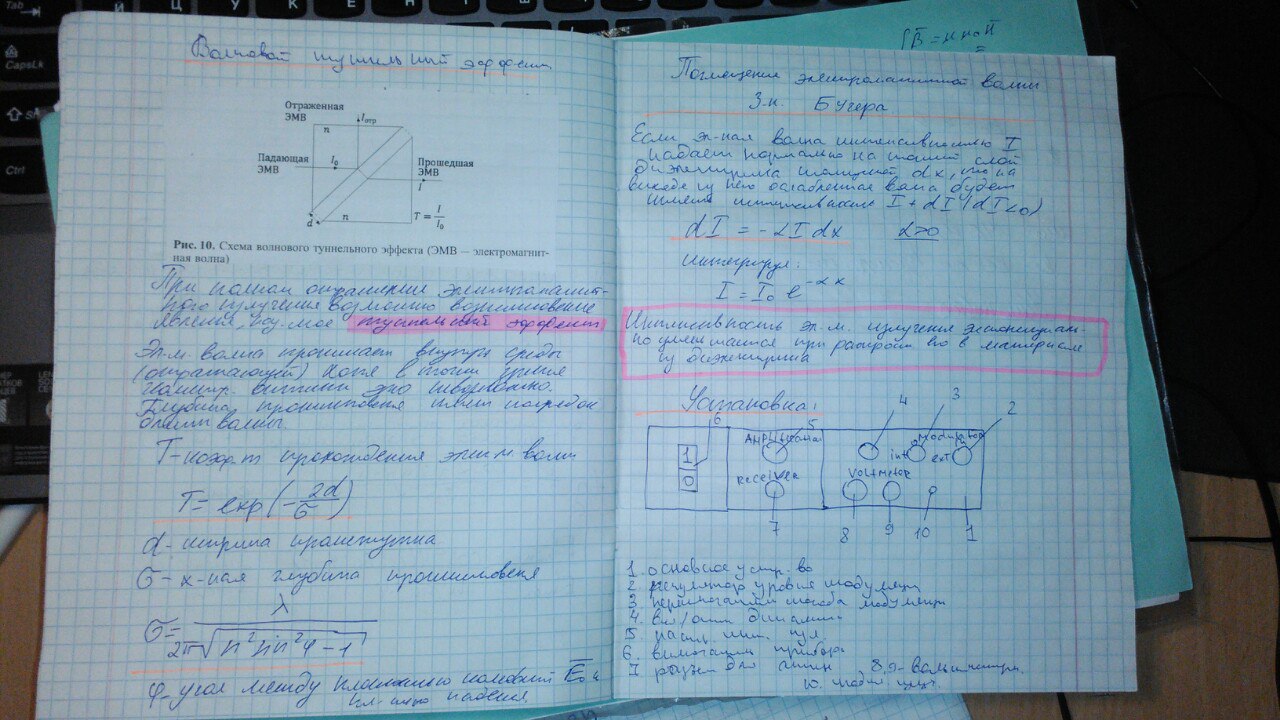 Волновой туннельный эффект
Отраженная
ЭМВ
n
Iотр
Падающая
ЭМВ
I₀
Прошедшая
ЭМВ
I
d
n
T = I/I₀
Рис. 10. Схема волнового туннельного эффекта (ЭМВ — электромагнит-
ная волна)
При полном отражение электромагнит-
ного излучения возможно возникновение
явления, наз-мое туннельный эффект
Эл.м. волна проникает внутрь среды
(отражающей) хотя в точки зрения
оптики это невозможно.
Глубина проникновения имеет порядок
длины волны.
T – коэф-т прохождения эл.м волн
T = exp(-2d/σ)
d - ширина промежутка
σ - х-ная глубина проникновения
σ = λ/(2π√(n² sin²φ - 1))
φ - угол между плоскостью колебаний E₀ и
пл-тью падения
B = μμ₀H
Поглощение электромагнитной волны
З-н. Бугера.
Если эл-ная волна интенсивностью I
падает нормально на тонкий слой
диэлектрика толщиной dx, то на
выходе из него ослабленная волна будет
иметь интенсивность I + dI (dI<0)
dI = -αI dx α>0
интегрируя:
I = I₀ e^(-αx)
Интенсивность эл.м. излучения экспоненциаль-
но уменьшается при распростр во в материале
из диэлектрика
Установка:
6 5 4 3 2
1
0
Receiver
int
ext
Voltmeter
7 8 9 10 1
1. основное устр-во
2 уровня модуляции
3. модуляции
4. вкл/выкл динамик
5
6. прибора
7. 8,9 - вольтметра
10.
Tab
CapsLk
Ctrl